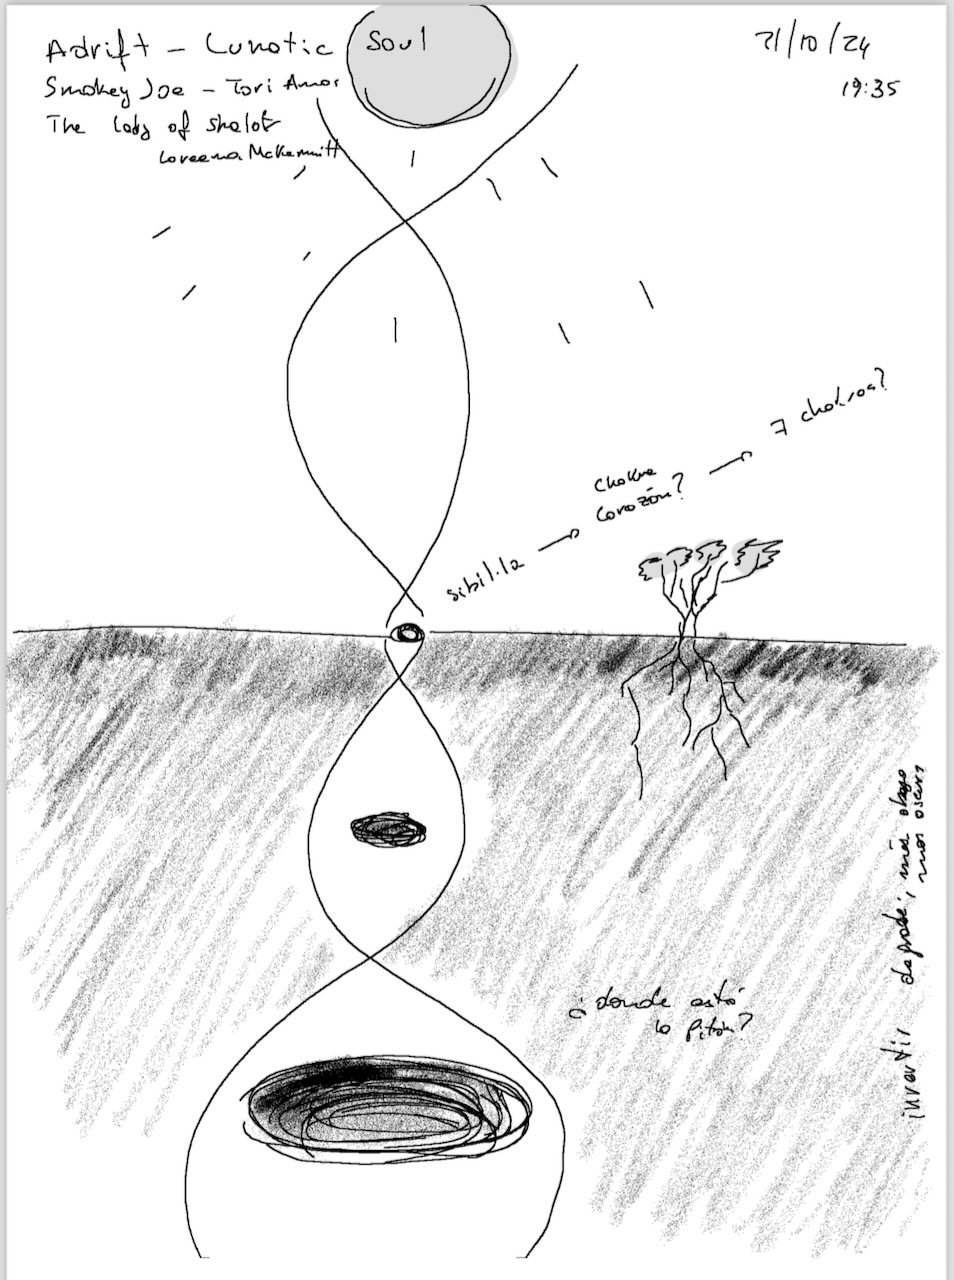 Adrift - Lunatic Soul
Smokey Joe - Tori Amos
The lady of shalot
Loreena McKennitt
21/10/24
19:35
7 chakras?
chakra
corazón?
sibil·la
¿donde está
la pitón?
invertir degradé, más abajo
mas oscuro